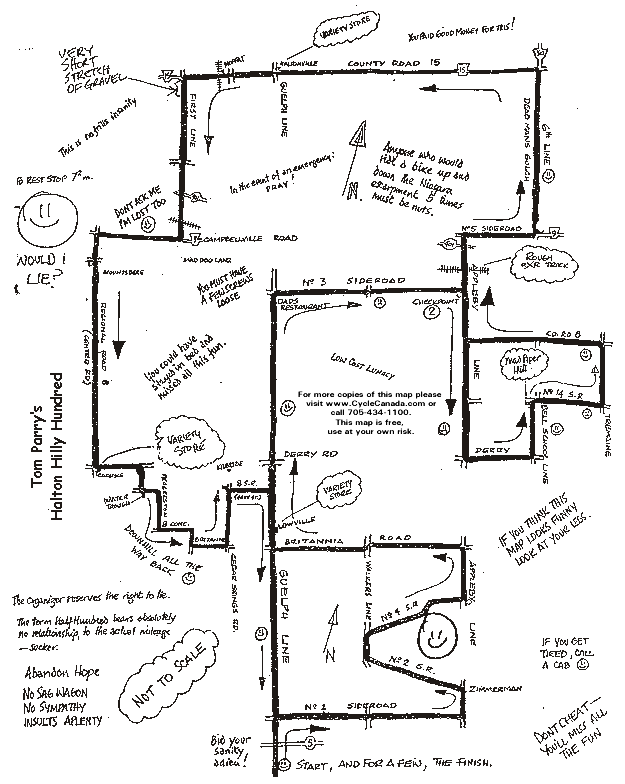 VARIETY STORE
YOU PAID GOOD MONEY FOR THIS!
VERY
SHORT
STRETCH
OF GRAVEL
MOFFAT
COUNTY ROAD 15
15
FIRST LINE
GUELPH LINE
DEAD MANS GULCH
6th LINE
This is no frills insanity
Anyone who would
ride a bike up and
down the Niagara
escarpment 5 times
must be nuts.
In the event of an emergency:
PRAY!
N.
B REST STOP 7ª m.
DON'T ASK ME
I'M LOST TOO
WOULD I
LIE?
CAMPBELLVILLE ROAD
Nº5 SIDEROAD
MOUNTSBERG
MAD DOG LANE
YOU MUST HAVE
A FEW SCREWS
LOOSE
ROUGH
RXR TRACK
APPLEBY
LINE
Nº 3 SIDEROAD
DADS
RESTAURANT
CHECKPOINT
2
REGIONAL ROAD 8
(CENTRE RD)
You could have
stayed in bed and
missed all this fun.
LOW COST LUNACY
CO. RD 8
Mad Piper
Hill
Nº 14 S.R
BELL SCHOOL LINE
TREMAINE
DERRY
For more copies of this map please
visit www.CycleCanada.com or
call 705-434-1100.
This map is free,
use at your own risk.
Tom Parry's
Halton Hilly Hundred
VARIETY
STORE
CARLISLE
KILBRIDE
DERRY RD
8 S.R.
WATER
TROUGH
MILBOROUGH
8 CONC.
BRITANNIA
VARIETY
STORE
LOWVILLE
BRITANNIA ROAD
DOWNHILL ALL THE
WAY BACK
CEDAR SPRINGS RD.
IF YOU THINK THIS
MAP LOOKS FUNNY
LOOK AT YOUR LEGS.
GUELPH LINE
WALKERS LINE
APPLEBY LINE
Nº 4 S.R
Nº 2 S.R.
N
The Organizer reserves the right to lie.
The term Half Hundred bears absolutely
no relationship to the actual mileage
— sucker.
Abandon Hope
NO SAG WAGON
NO SYMPATHY
INSULTS APLENTY
NOT TO SCALE
IF YOU GET
TIRED, CALL
A CAB
ZIMMERMAN
Nº 1 SIDEROAD
DON'T CHEAT—
YOU'LL MISS ALL
THE FUN
Bid your
sanity
adieu!
5
START, AND FOR A FEW, THE FINISH.